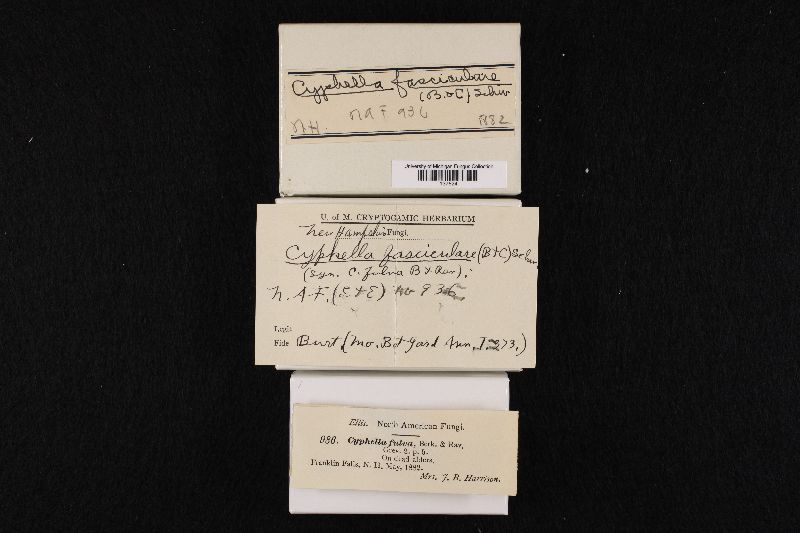 Cyphella fasciculare
(B. & C) Schw
N.H. NAF 936 1882
University of Michigan Fungus Collection
U. of M. CRYPTOGAMIC HERBARIUM
New Hampshire Fungi.
Cyphella fasciculare (B & C) Schw
(Syn. C. fulva B & Rav);
N. A. F. (E & E) no 936
Legit
Fide Burt (Mo. Bot Gard Ann. 1:373.)
Ellis. North American Fungi.
936. Cyphella fulva, Berk. & Rav.
Grev. 2. p. 5.
On dead alders,
Franklin Falls, N. H. May, 1882.
Mrs. J. R. Harrison.